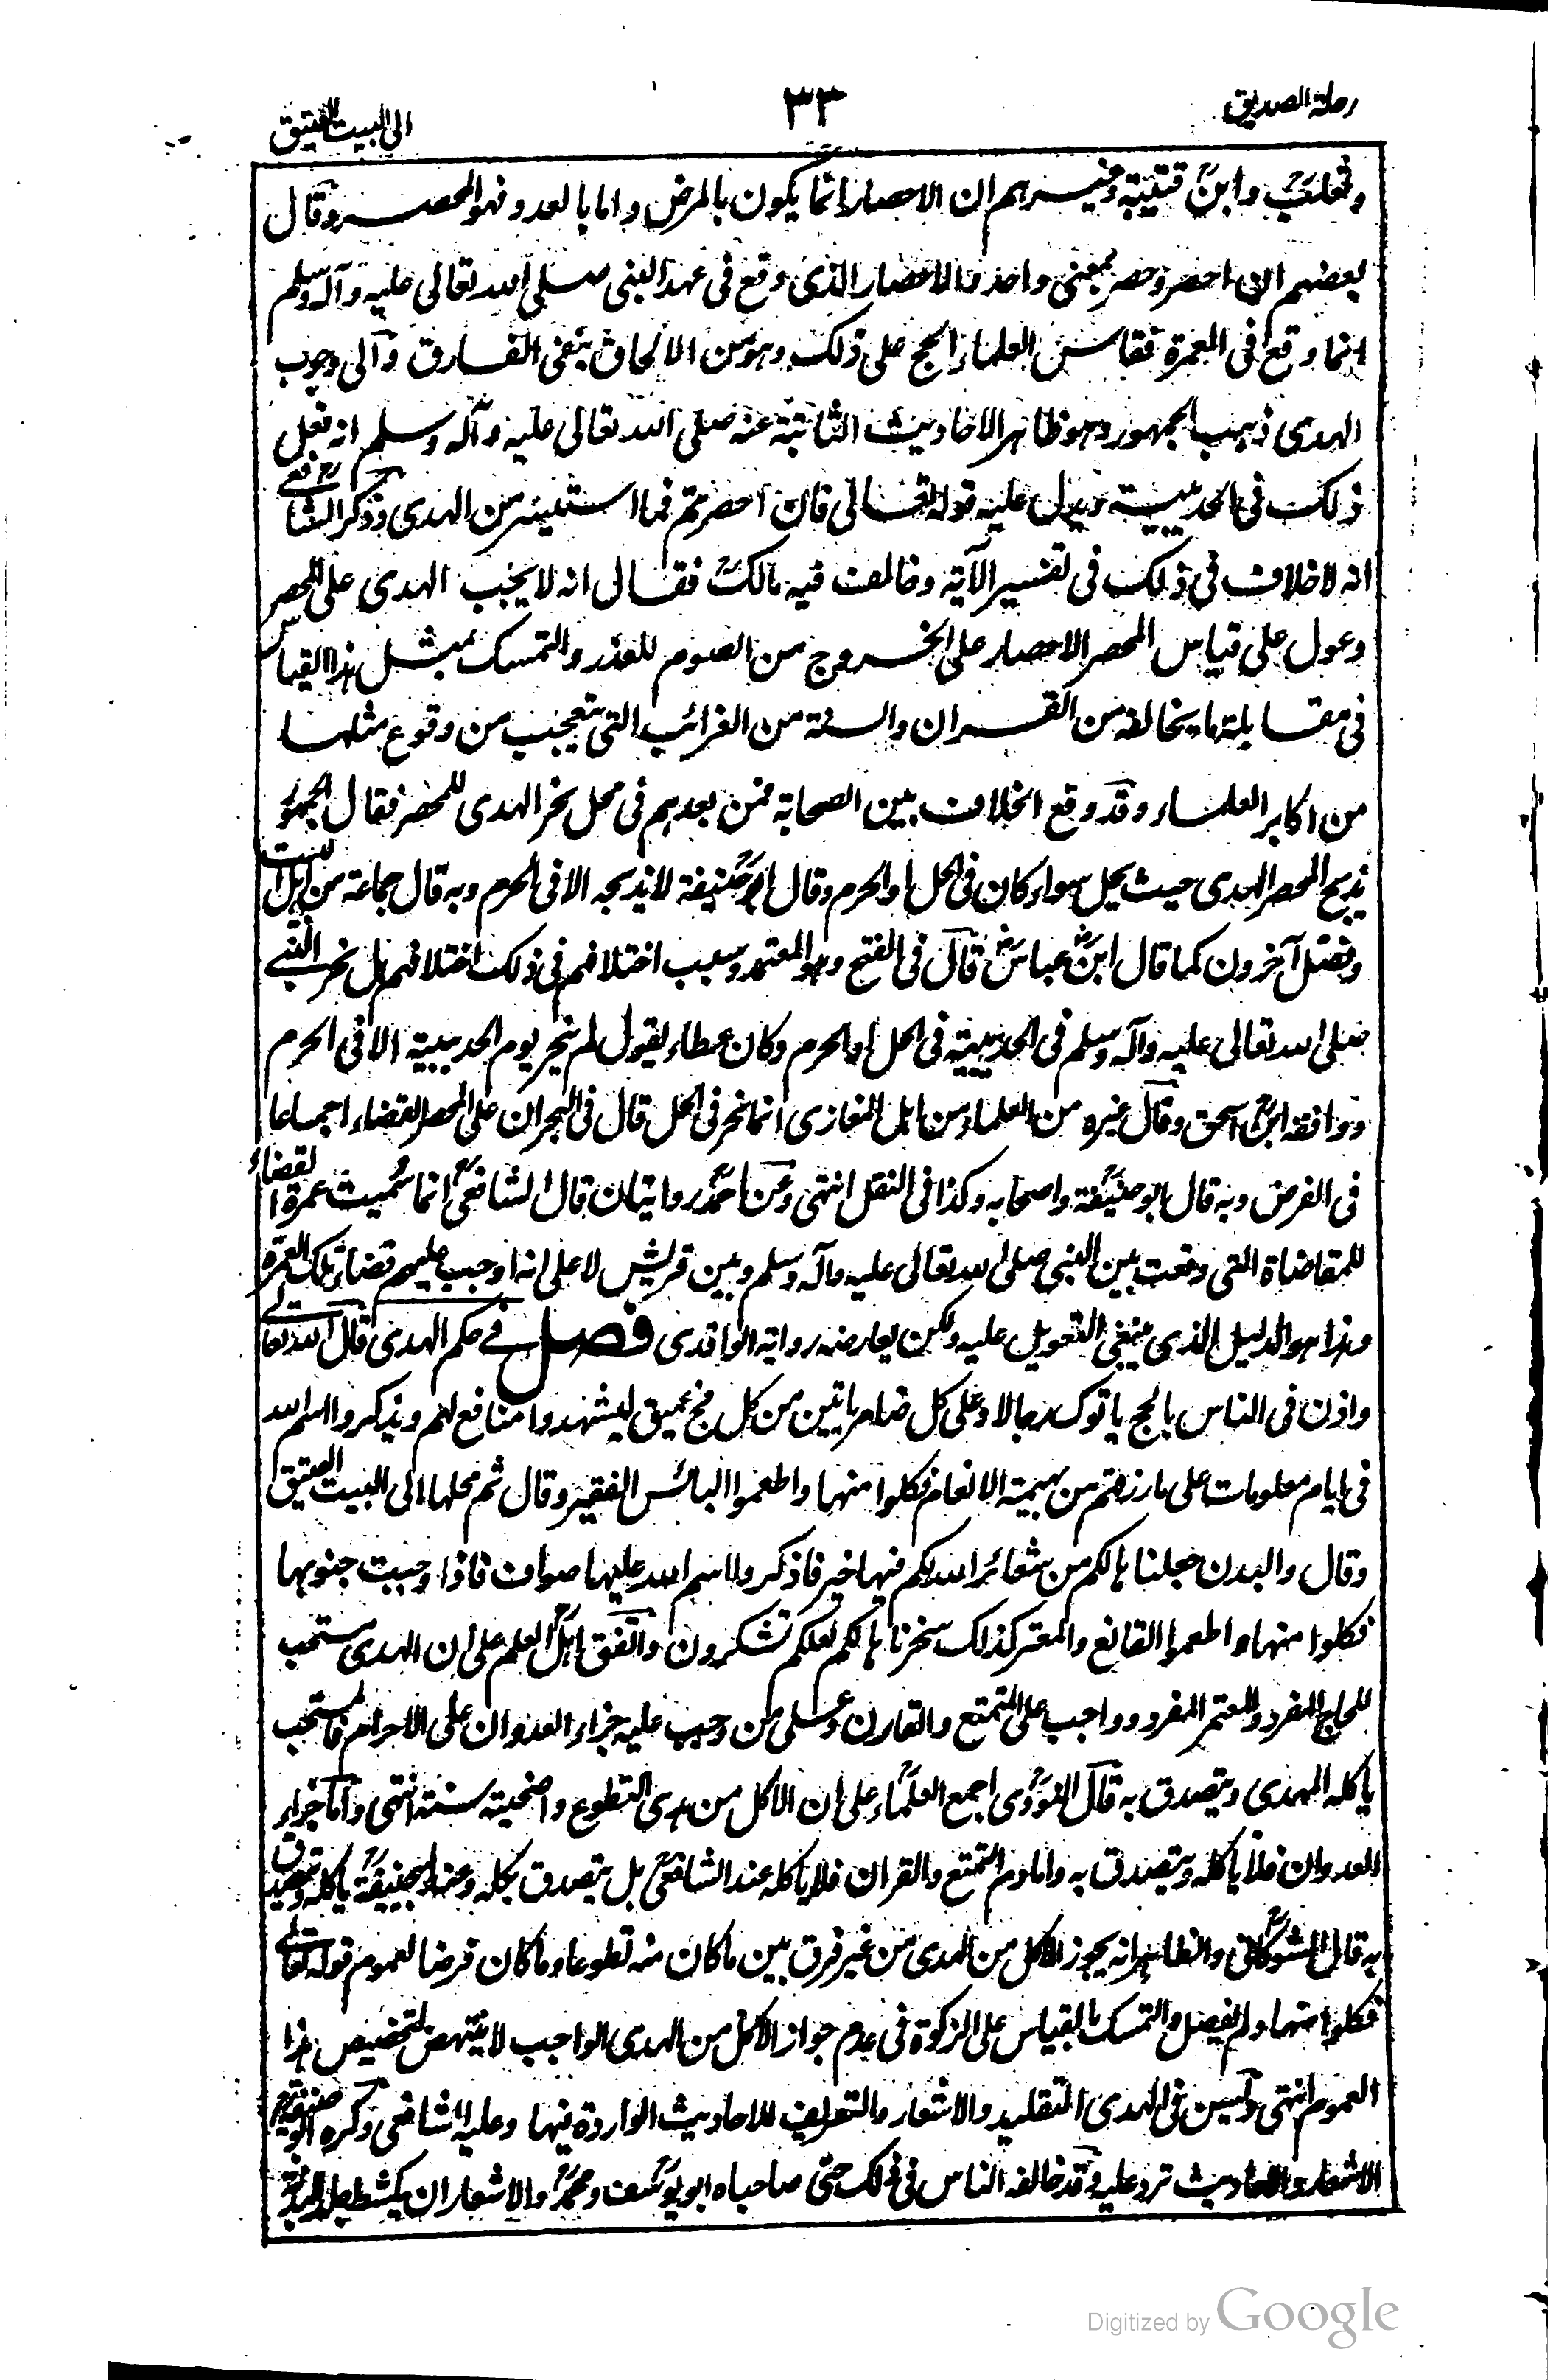 رحلة الصديق
٣٣
الى البيت العتيق
وثعلب وابن قتيبة وغيرهم ان الاحصار انما يكون بالمرض واما بالعدو فهو الحصر وقال
بعضهم ان احصر وحصر بمعنى واحد والاحصار الذى وقع فى عهد النبى صلى الله تعالى عليه وآله وسلم
انما وقع فى العمرة فقاس العلماء الحج على ذلك وهو من الالحاق بنفى الفارق وآلى وجوب
الهدى ذهب الجمهور وهو ظاهر الاحاديث الثابتة عنه صلى الله تعالى عليه وآله وسلم انه فعل
ذلك فى الحديبية ويدل عليه قوله تعالى فان احصرتم فما استيسر من الهدى وذكر الشافعى رح
انه لا خلاف فى ذلك فى تفسير الآية وخالف فيه مالك فقال انه لا يجب الهدى على المحصر
وعول على قياس المحصر الاحصار على الخروج من الصوم للعذر والتمسك بمثل هذا القياس
فى مقابلة ما يخالفه من القران والسنة من الغرائب التى يتعجب من وقوع مثلها
من اكابر العلماء وقد وقع الخلاف بين الصحابة فمن بعدهم فى محل نحر الهدى للمحصر فقال الجمهور
يذبح المحصر الهدى حيث يحل سواء كان فى الحل او الحرم وقال ابو حنيفة لا يذبحه الا فى الحرم وبه قال جماعة من اهل البيت
وفصل آخرون كما قال ابن عباس قال فى الفتح وهو المعتمد وسبب اختلافهم فى ذلك اختلافهم هل نحر النبى
صلى الله تعالى عليه وآله وسلم فى الحديبية فى الحل او الحرم وكان عطاء يقول لم ينحر يوم الحديبية الا فى الحرم
ووافقه ابن اسحق وقال غيره من العلماء من اهل المغازى انما نحر فى الحل قال فى البحر ان على المحصر القضاء اجماعا
فى الفرض وبه قال ابو حنيفة واصحابه وكذا فى النفل انتهى وعن احمد روايتان قال الشافعى انما سميت عمرة القضاء
للمقاضاة التى وقعت بين النبى صلى الله تعالى عليه وآله وسلم وبين قريش لا على انه اوجب عليهم قضاء تلك العمرة
وهذا هو الدليل الذى ينبغى التعويل عليه ولكن يعارضه رواية الواقدى فصل فى حكم الهدى قال الله تعالى
واذن فى الناس بالحج ياتوك رجالا وعلى كل ضامر ياتين من كل فج عميق ليشهدوا منافع لهم ويذكروا اسم الله
فى ايام معلومات على ما رزقهم من بهيمة الانعام فكلوا منها واطعموا البائس الفقير وقال ثم محلها الى البيت العتيق
وقال والبدن جعلناها لكم من شعائر الله لكم فيها خير فاذكروا اسم الله عليها صواف فاذا وجبت جنوبها
فكلوا منها واطعموا القانع والمعتر كذلك سخرناها لكم لعلكم تشكرون واتفق اهل العلم على ان الهدى مستحب
للحاج المفرد والمعتمر المفرد وواجب على المتمتع والقارن وعلى من وجب عليه جزاء العدوان على الاحرام فالمستحب
ياكله المهدى ويتصدق به قال النووى اجمع العلماء على ان الاكل من هدى التطوع واضحيته سنة انتهى واما جزاء
العدوان فلا ياكله ويتصدق به واما دم التمتع والقران فلا ياكله عند الشافعى بل يتصدق بكله وعند ابيحنيفة ياكله ويتصدق
به قال الشوكانى والظاهر انه يجوز الاكل من الهدى من غير فرق بين ما كان منه تطوعا وما كان فرضا لعموم قوله تعالى
فكلوا منها ولم يفصل والتمسك بالقياس على الزكوة فى عدم جواز الاكل من الهدى الواجب لا ينتهض لتخصيص هذا
العموم انتهى ويسن فى الهدى التقليد والاشعار والتعريف للاحاديث الواردة فيها وعليه الشافعى وكره ابو حنيفة
الاشعار والاحاديث ترد عليه وقد خالفه الناس فى ذلك حتى صاحباه ابو يوسف ومحمد والاشعار ان يكشط جلد البدنة
Digitized by Google